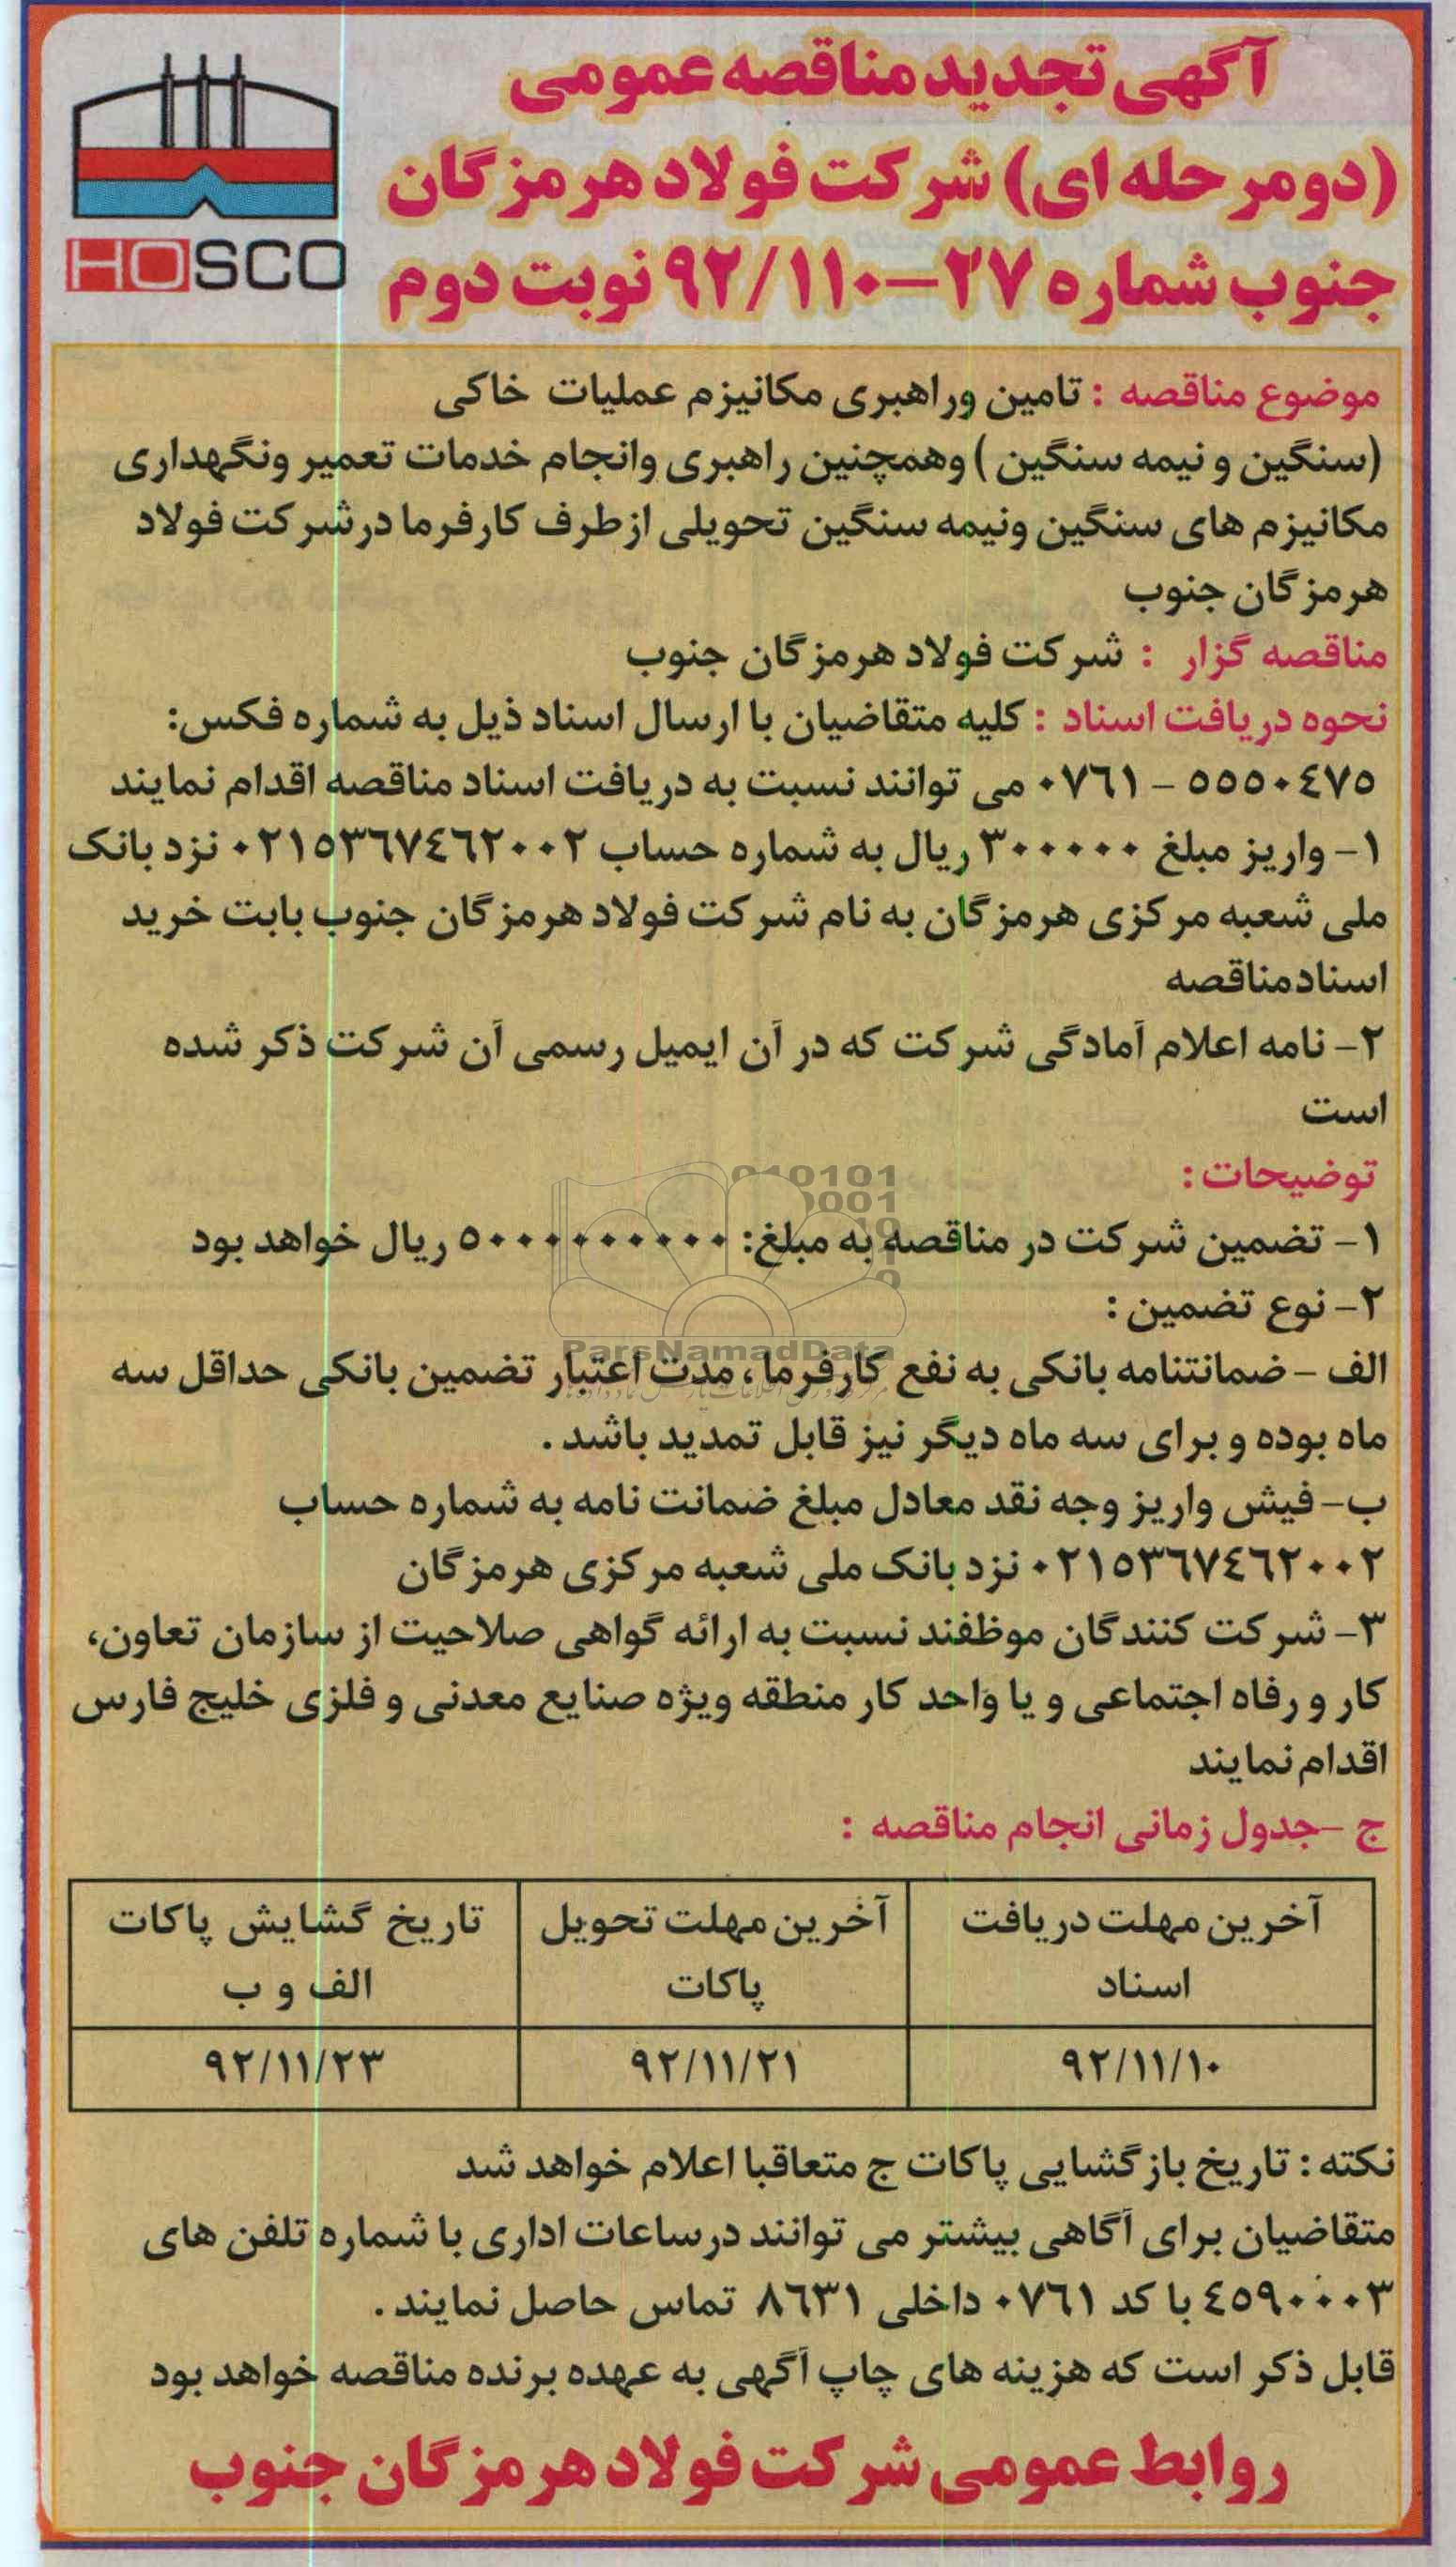 آگهی تجدید مناقصه عمومی
(دو مرحله ای) شرکت فولاد هرمزگان
جنوب شماره ۲۷-۹۲/۱۱۰ نوبت دوم
HOSCO
موضوع مناقصه : تامین وراهبری مکانیزم عملیات خاکی
(سنگین و نیمه سنگین ) وهمچنین راهبری وانجام خدمات تعمیر ونگهداری
مکانیزم های سنگین ونیمه سنگین تحویلی ازطرف کارفرما درشرکت فولاد
هرمزگان جنوب
مناقصه گزار : شرکت فولاد هرمزگان جنوب
نحوه دریافت اسناد : کلیه متقاضیان با ارسال اسناد ذیل به شماره فکس:
۵۵۵۰۴۷۵ - ۰۷۶۱ می توانند نسبت به دریافت اسناد مناقصه اقدام نمایند
۱- واریز مبلغ ۳۰۰۰۰۰ ریال به شماره حساب ۰۲۱۵۳۶۷۴۶۲۰۰۲ نزد بانک
ملی شعبه مرکزی هرمزگان به نام شرکت فولاد هرمزگان جنوب بابت خرید
اسنادمناقصه
۲- نامه اعلام آمادگی شرکت که در آن ایمیل رسمی آن شرکت ذکر شده
است
توضیحات :
۱- تضمین شرکت در مناقصه به مبلغ: ۵۰۰۰۰۰۰۰۰۰ ریال خواهد بود
۲- نوع تضمین :
الف - ضمانتنامه بانکی به نفع کارفرما ، مدت اعتبار تضمین بانکی حداقل سه
ماه بوده و برای سه ماه دیگر نیز قابل تمدید باشد .
ب- فیش واریز وجه نقد معادل مبلغ ضمانت نامه به شماره حساب
۰۲۱۵۳۶۷۴۶۲۰۰۲ نزد بانک ملی شعبه مرکزی هرمزگان
۳- شرکت کنندگان موظفند نسبت به ارائه گواهی صلاحیت از سازمان تعاون،
کار و رفاه اجتماعی و یا واحد کار منطقه ویژه صنایع معدنی و فلزی خلیج فارس
اقدام نمایند
ج -جدول زمانی انجام مناقصه :
آخرین مهلت دریافت اسناد
آخرین مهلت تحویل پاکات
تاریخ گشایش پاکات الف و ب
۹۲/۱۱/۱۰
۹۲/۱۱/۲۱
۹۲/۱۱/۲۳
نکته : تاریخ بازگشایی پاکات ج متعاقبا اعلام خواهد شد
متقاضیان برای آگاهی بیشتر می توانند درساعات اداری با شماره تلفن های
۴۵۹۰۰۰۳ با کد ۰۷۶۱ داخلی ۸۶۳۱ تماس حاصل نمایند .
قابل ذکر است که هزینه های چاپ آگهی به عهده برنده مناقصه خواهد بود
روابط عمومی شرکت فولاد هرمزگان جنوب
ParsNamadData